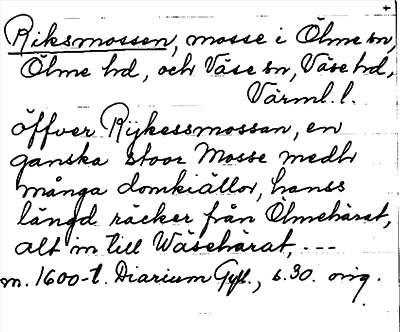 Riksmossen, mosse i Ölme sn,
Ölme hd, och Väse sn, Väse hd,
Värml. l.
öffver Rijkessmossan, en
ganska stoor Mosse medh
många domkiällor, hanss
längd räcker från Ölmehärat,
alt in till Wäsehärat, ---
m. 1600-t. Diarium Gyll., s. 30. orig.